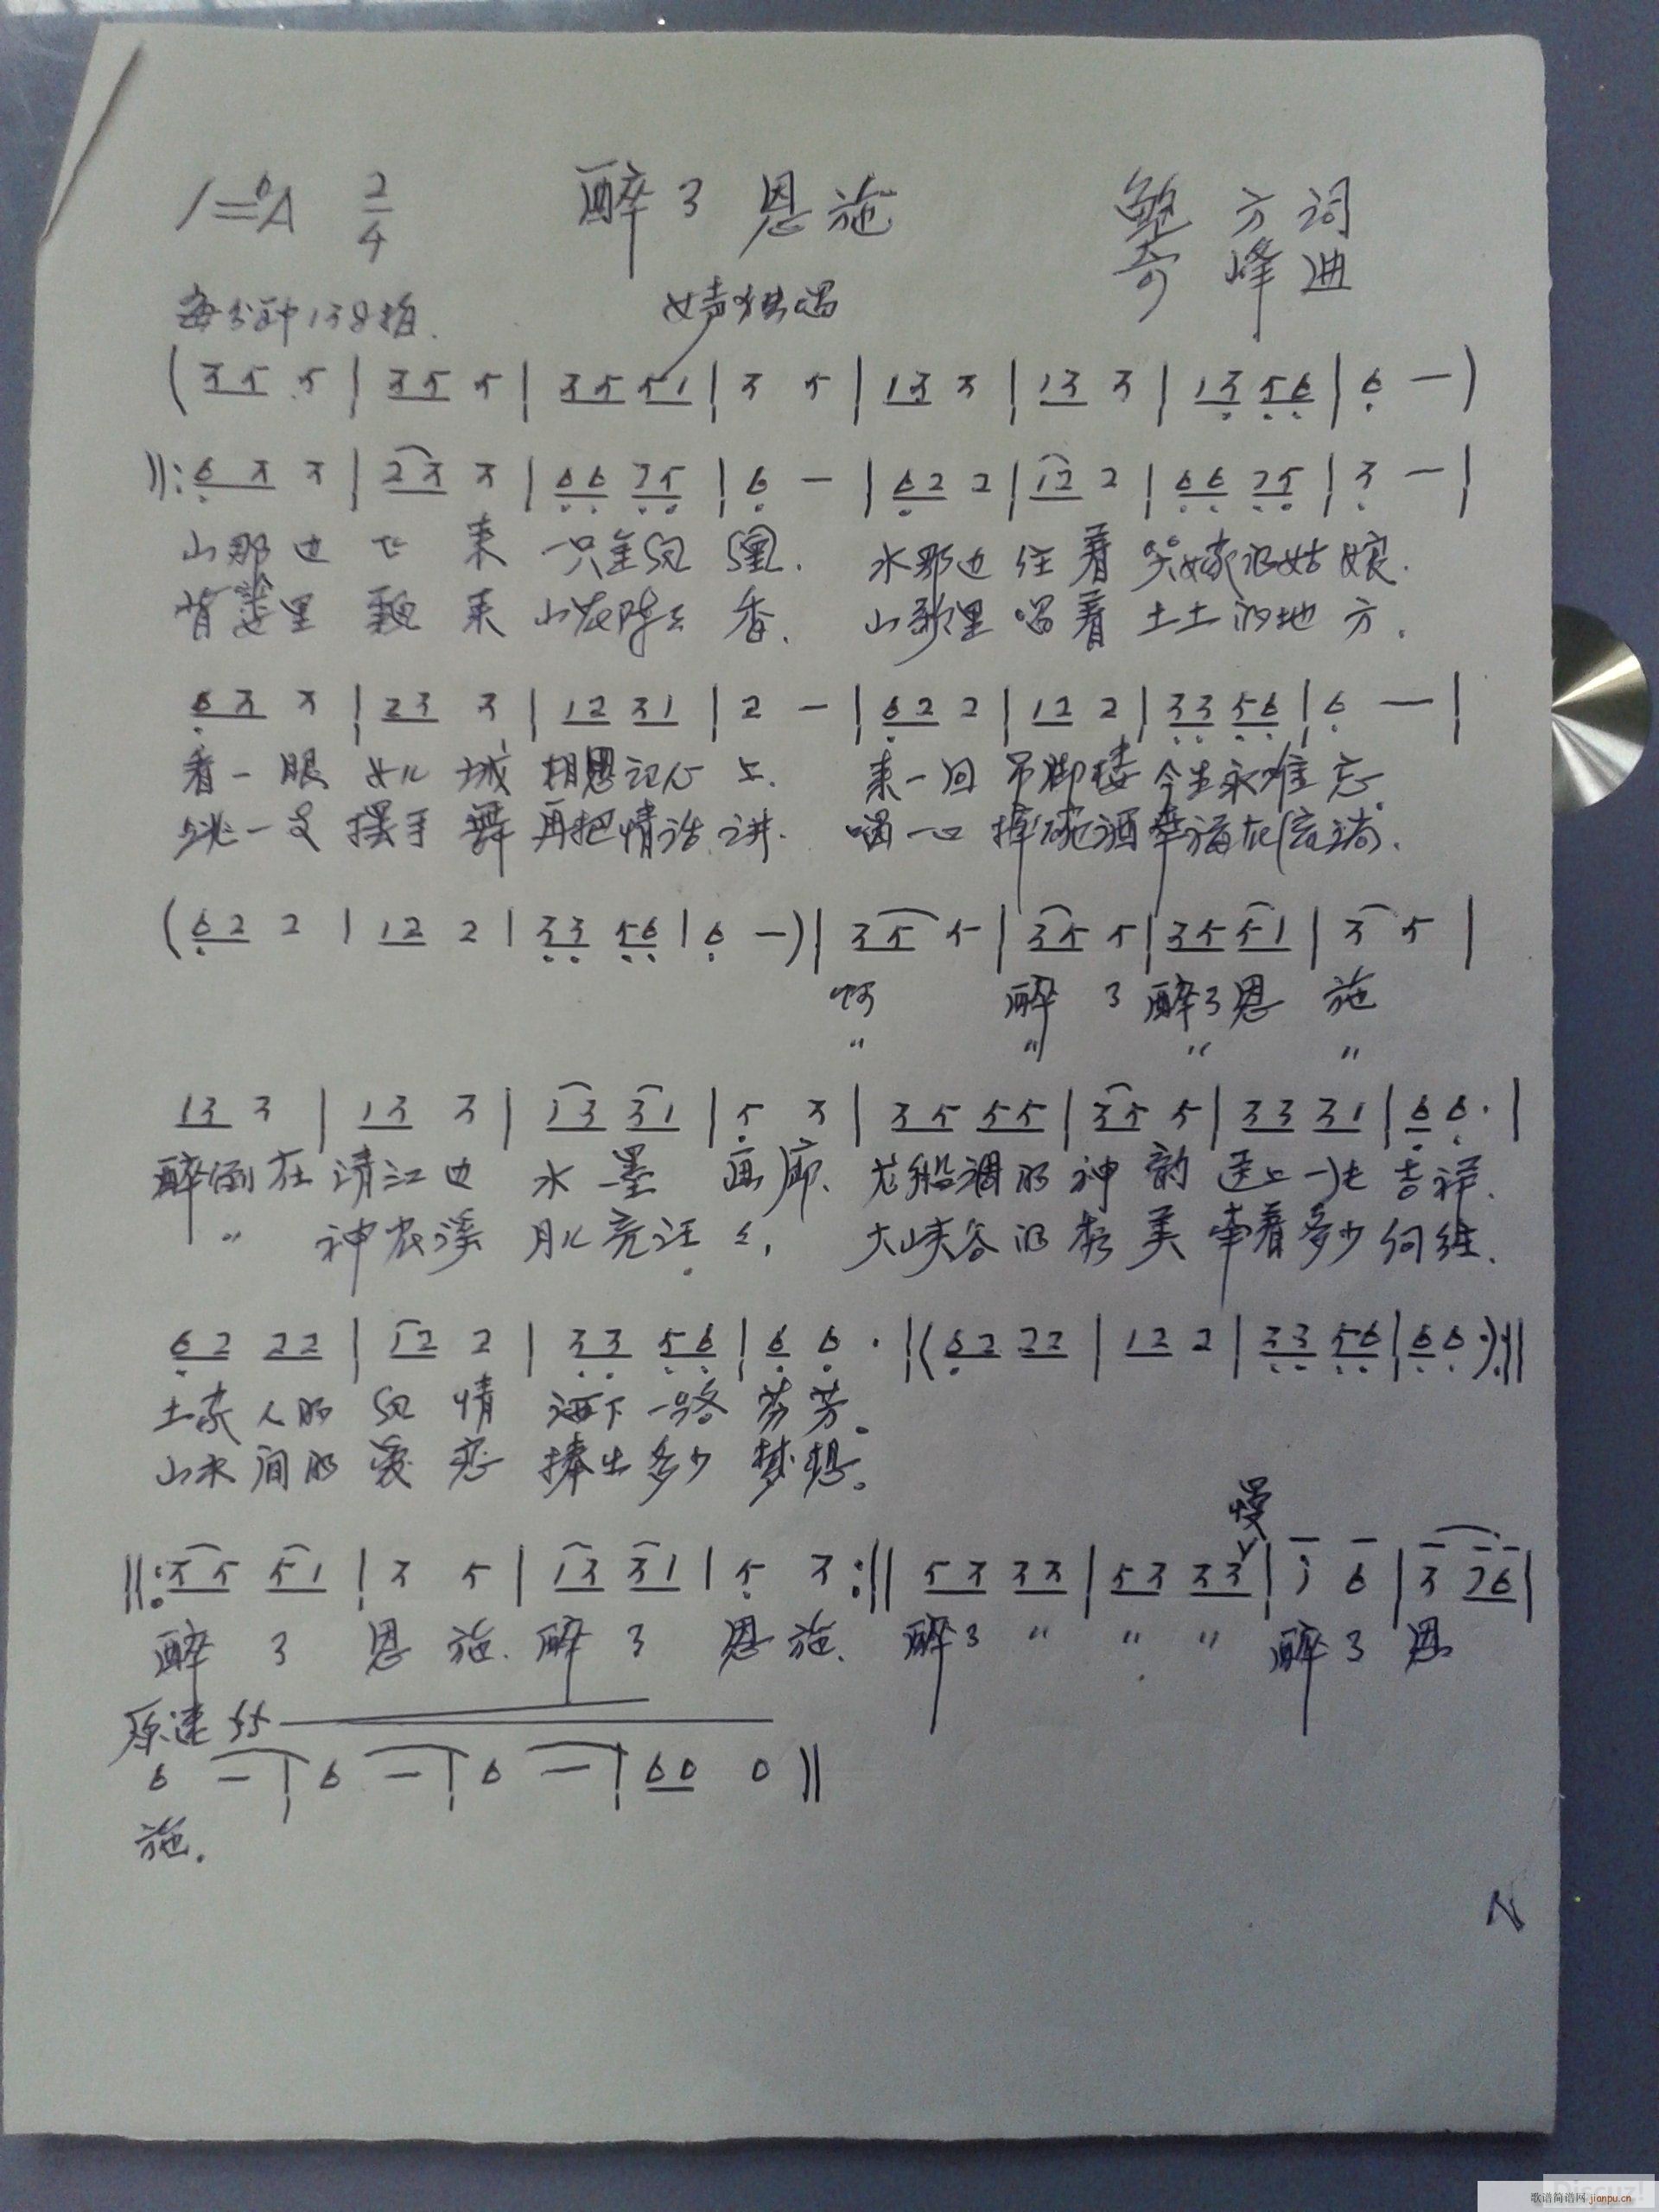 1=♭A 2/4 醉了恩施 鲍方词
奇峰曲
每分钟138拍. 女声独唱
( 3 5 5 | 3 5 5 | 3 5 5 1 | 3 5 | 1 3 3 | 1 3 3 | 1 3 5 6 | 6 — )
‖: 6 3 3 | 2 3 3 | 6 6 7 5 | 6 — | 6 2 2 | 1 2 2 | 6 6 7 5 | 3 — |
山那边飞来一只金凤凰. 水那边住着哭嫁的姑娘.
背篓里飘来山花阵阵香. 山歌里唱着土土的地方.
6 3 3 | 2 3 3 | 1 2 3 1 | 2 — | 6 2 2 | 1 2 2 | 3 3 5 6 | 6 — |
看一眼女儿城相思记心上. 来一回吊脚楼今生永难忘.
跳一支摆手舞再把情话讲. 喝一口摔碗酒幸福在流淌.
( 6 2 2 | 1 2 2 | 3 3 5 6 | 6 — ) | 3 5 5 | 3 5 5 | 3 5 5 1 | 3 5 |
啊 醉了醉了恩施
" " " "
1 3 3 | 1 3 3 | 1 3 3 1 | 5 3 | 3 5 5 5 | 3 5 5 | 3 3 3 1 | 6 6 · |
醉倒在清江边水墨画廊. 龙船调的神韵送上一生吉祥.
" 神农溪月儿亮汪汪, 大峡谷的秀美牵着多少向往.
6 2 2 2 | 1 2 2 | 3 3 5 6 | 6 6 · | ( 6 2 2 2 | 1 2 2 | 3 3 5 6 | 6 6 · ) :‖
土家人的风情洒下一路芬芳。
山水间的爱恋捧出多少梦想。
慢
‖: 3 5 5 1 | 3 5 | 1 3 3 1 | 5 3 :‖ 5 3 3 3 | 5 3 3 3 | 1 6 | 3 7 6 |
醉了恩施. 醉了恩施. 醉了 " " " 醉了恩
原速 ff
6 — | 6 — | 6 — | 6 0 0 ‖
施.
歌谱简谱网 jianpu.cn
Discuz!